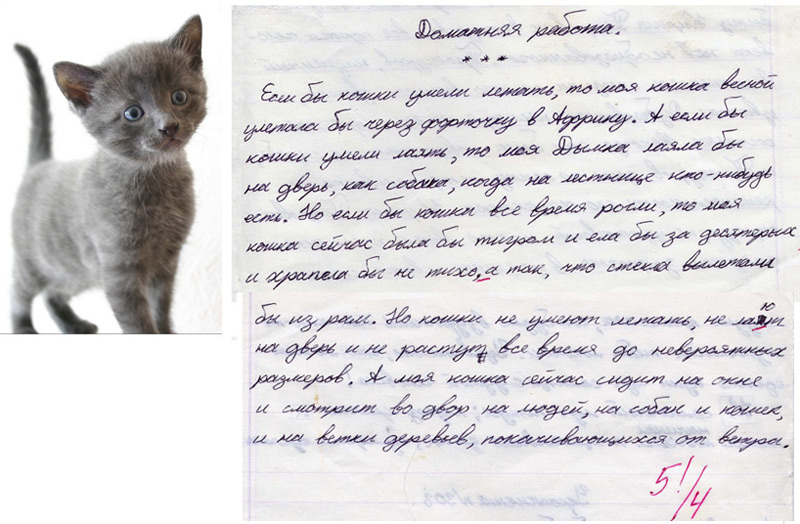 Домашняя работа.
* * *
Если бы кошки умели летать, то моя кошка весной
улетала бы через форточку в Африку. А если бы
кошки умели лаять, то моя Дымка лаяла бы
на дверь, как собака, когда на лестнице кто-нибудь
есть. Но если бы кошки все время росли, то моя
кошка сейчас была бы тигром и ела бы за десятерых,
и храпела бы не тихо, а так, что стекла вылетали
бы из рам. Но кошки не умеют летать, не лают
на дверь и не растут все время до невероятных
размеров. А моя кошка сейчас сидит на окне
и смотрит во двор на людей, на собак и кошек,
и на ветки деревьев, покачивающихся от ветра.
5!/4